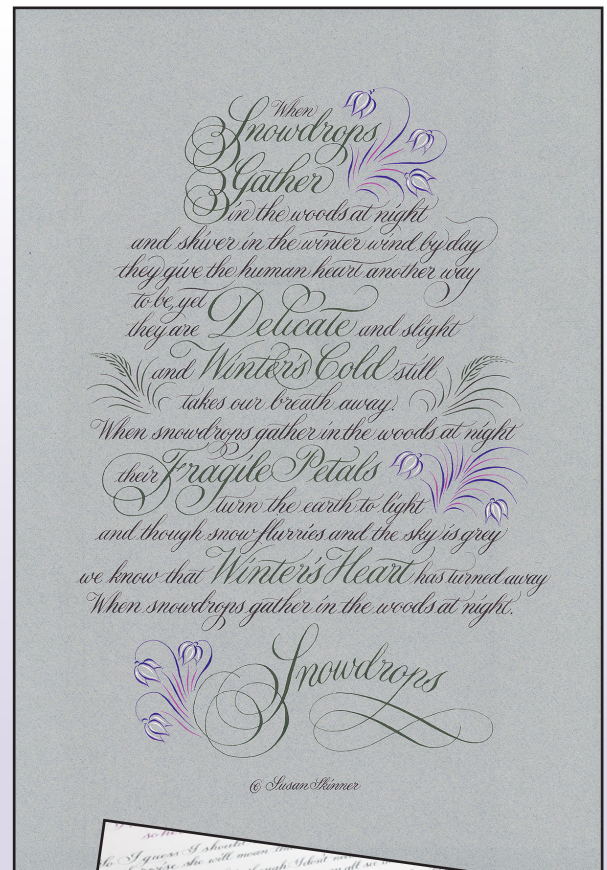 When
Snowdrops
Gather
in the woods at night
and shiver in the winter wind by day
they give the human heart another way
to be, yet
they are Delicate and slight
and Winter's Cold still
takes our breath away.
When snowdrops gather in the woods at night
their Fragile Petals
turn the earth to light
and though snow flurries and the sky is grey
we know that Winter's Heart has turned away
When snowdrops gather in the woods at night.
Snowdrops
© Susan Skinner
So I guess I should
she will mean